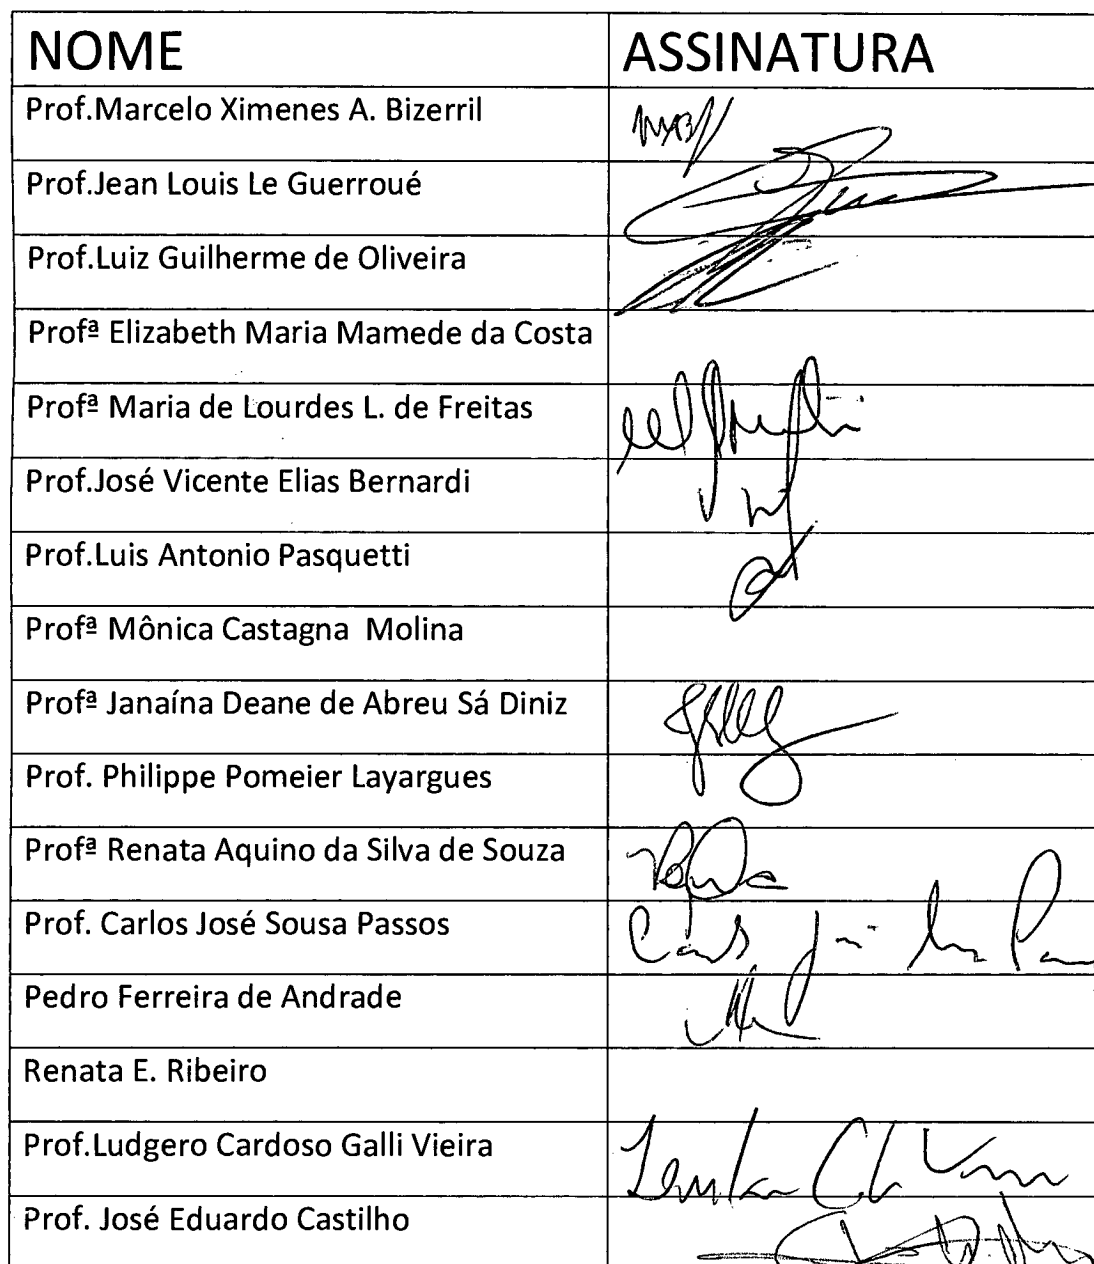 NOME ASSINATURA
Prof.Marcelo Ximenes A. Bizerril
Prof.Jean Louis Le Guerroué
Prof.Luiz Guilherme de Oliveira
Profª Elizabeth Maria Mamede da Costa
Profª Maria de Lourdes L. de Freitas
Prof.José Vicente Elias Bernardi
Prof.Luis Antonio Pasquetti
Profª Mônica Castagna Molina
Profª Janaína Deane de Abreu Sá Diniz
Prof. Philippe Pomeier Layargues
Profª Renata Aquino da Silva de Souza
Prof. Carlos José Sousa Passos
Pedro Ferreira de Andrade
Renata E. Ribeiro
Prof.Ludgero Cardoso Galli Vieira
Prof. José Eduardo Castilho